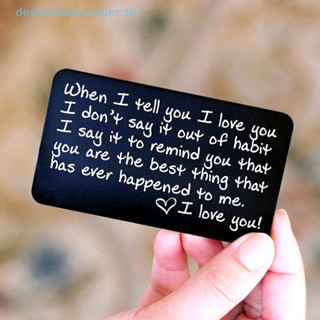 When I tell you I love you
I don't say it out of habit
I say it to remind you that
you are the best thing that
has ever happened to me.
♡ I love you!